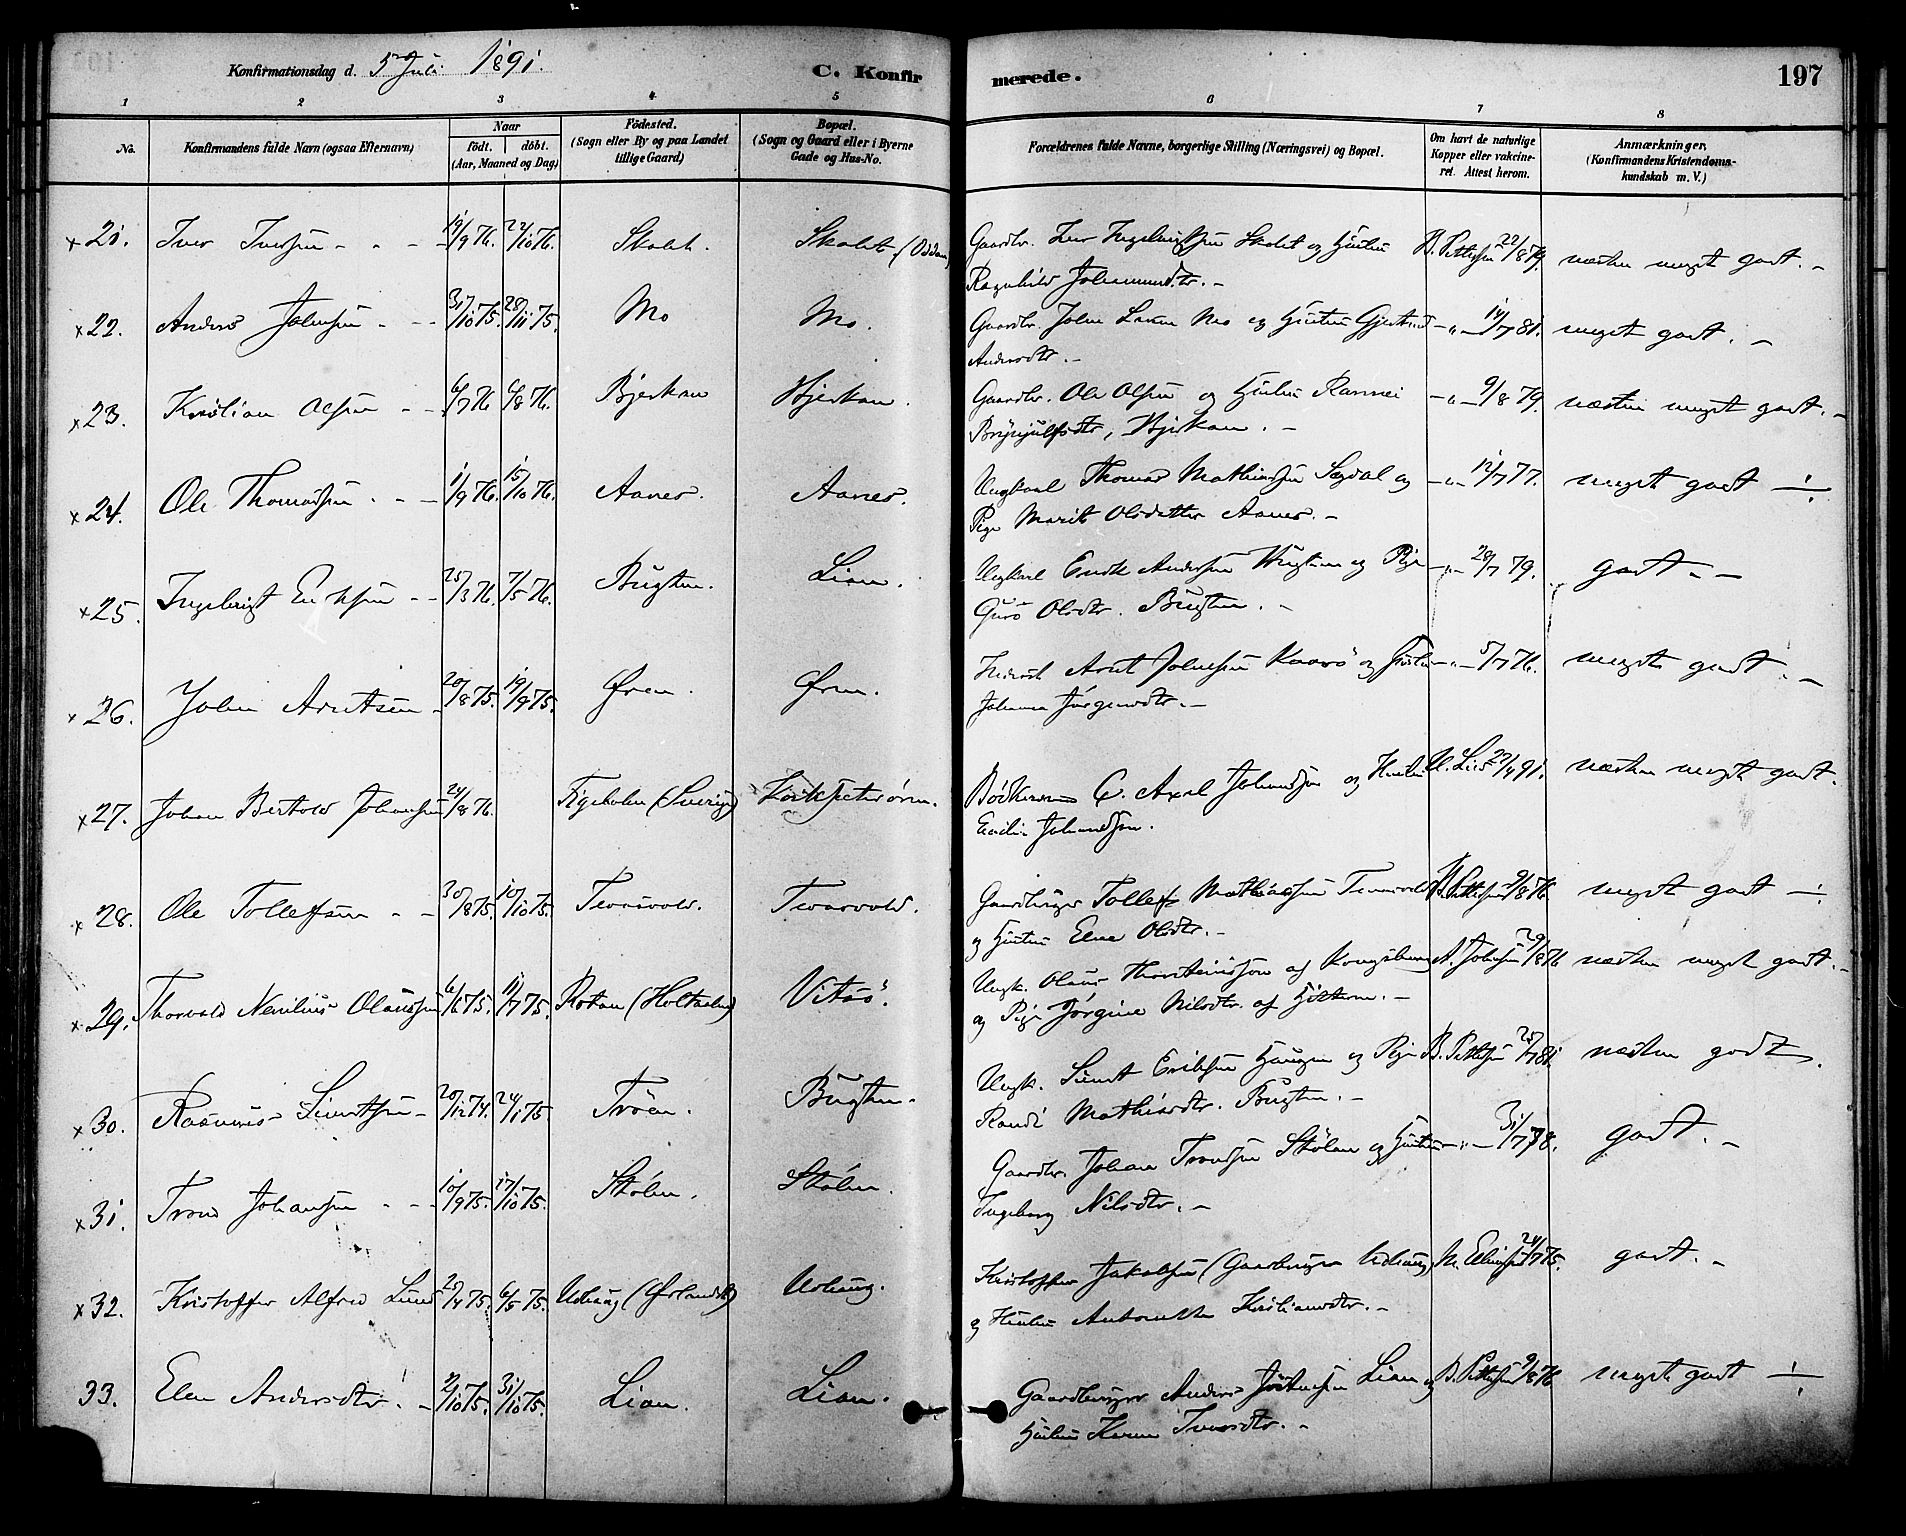 Konfirmationsdag d. 5 Juli 1891.
C. Konfirmerede.
197
1 2 3 4 5 6 7 8
No.
Konfirmandens fulde Navn (ogsaa Efternavn)
Naar
födt. döbt.
(Aar, Maaned og Dag)
Födested.
(Sogn eller By og paa Landet
tillige Gaard)
Bopæl.
(Sogn og Gaard eller i Byerne
Gade og Hus-No.
Forældrenes fulde Navne, borgerlige Stilling (Næringsvei) og Bopæl.
Om havt de naturlige
Kopper eller vakcine-
ret. Attest herom.
Anmærkninger,
(Konfirmandens Kristendoms-
kundskab m. V.)
x 21. Iver Iversen - - - 19/9 76. 22/10 76. Skalet. Skalet (Oddan) Gaardbr. Iver Ingebrigtsen Skalet og Hustru B. Pettersen 22/8 79. næsten meget godt. -
Ragnhild Johannesdtr. -
x 22. Anders Johnsen - - - 31/10 75. 28/11 75. Mo Mo. Gaardbr. John Larsen Mo og Hustru Gjertrud - " - 14/7 81. meget godt. -
Andersdtr. -
x 23. Kristian Olsen - - 6/7 76 6/8 76. Bjerkan Hjerkan. Gaardbr. Ole Olsen og Hustru Rannei - " - 9/8 79. næsten meget godt. -
Brynjulfsdtr, Hjerkan. -
x 24. Ole Thomassen - - - 1/9 76. 15/10 76. Aanes. Aanes. Ungkarl Thomas Mathiassen Sagdal og - " - 12/7 77. meget godt -
Pige Marit Olsdatter Aanes. -
x 25. Ingebrigt Eriksen - - 25/3 76. 7/5 76. Bugten. Lian. Ungkarl Erik Andersen Haugen og Pige - " - 28/7 79. godt. -
Guro Olsdtr. Bugten. -
x 26. John Arntsen - 20/8 75. 19/9 75. Øren. Øren. Inderst Arnt Johnsen Kaarø og Hustru - " - 5/7 76. meget godt. -
Johanna Jørgensdtr. -
x 27. Johan Bertold Johansen 24/8 76. Figeholm (Sverige) Bödker C. Axel Johansson og Hustru U. Lies 27/4 91. næsten meget godt.
Emilie Johansson.
x 28. Ole Tollefsen - - 30/8 75. 10/10 75. Tevasvold. Tevasvold. Gaardbruger Tollef Mathiassen Tevasvold B. Pettersen 9/8 76. meget godt -
og Hustru Elen Olsdtr. -
x 29. Thorvald Nemilius Olaussen 6/6 75. 11/7 75. Rotan (Holtaalen) Vitsö. Ungk. Olaus Thorsteinssön af Kongsberg A. Johnsen 29/8 76 næsten meget godt. -
og Pige Jørgine Nilsdtr. af Hitteren. -
x 30. Rasmus Sivertsen - 20/12 74. 24/1 75. Tröen. Bugten. Ungk. Sivert Eriksen Haugen og Pige B. Pettersen 25/7 81. næsten godt.
Randi Mathiasdtr. Bugten. -
x 31. Trond Johansen - - - 10/9 75. 17/10 75. Stölen. Stölen. Gaardbr. Johan Trondsen Stölen og Hustru - " - 31/7 78. godt. -
Ingeborg Nilsdtr. -
x 32. Kristoffer Alfred Lund 2/4 75. 6/5 75. Udhaug (Ørlandet) Udhaug. Kristoffer Jakobsen (Gaardbruger Udhaug) 24/7 75. godt. -
og Hustru Antonette Kristiansdtr. -
33. Elen Andersdtr. - 2/10 75. 31/10 75. Lian. Lian. Gaardbruger Anders Lian og B. Pettersen 9/8 76 meget godt -
Hustru Karen Iversdtr. -